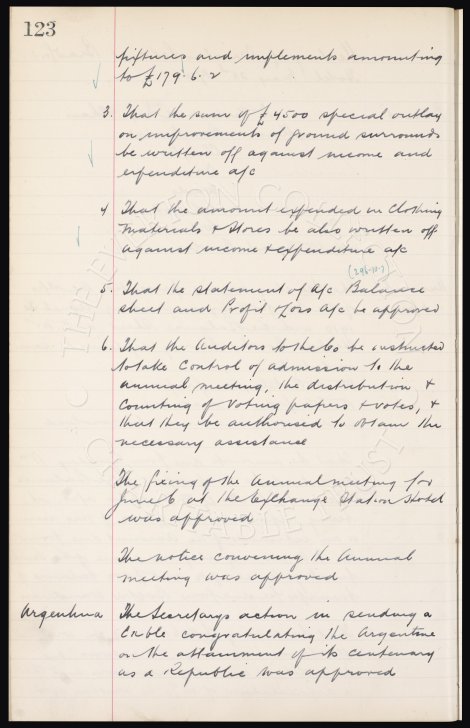 123
fixtures and implements amounting
to £179. 6. 2
3. That the sum of £4500 special outlay
on improvements of ground surrounds
be written off against income and
expenditure a/c
4 That the amount expended in Clothing
Materials & Stores be also written off
against income & expenditure a/c
5. That the statement of a/c Balance
sheet and Profit & Loss a/c be approved
6. That the Auditors to the Co be instructed
to take control of admission to the
annual meeting, the distribution &
counting of voting papers & votes, &
that they be authorised to obtain the
necessary assistance
The fixing of the annual meeting for
June 6 at the Exchange Station Hotel
was approved
The notice convening the Annual
meeting was approved
Argentina The Secretarys action in sending a
Cable congratulating the Argentine
on the attainment of its centenary
as a Republic was approved